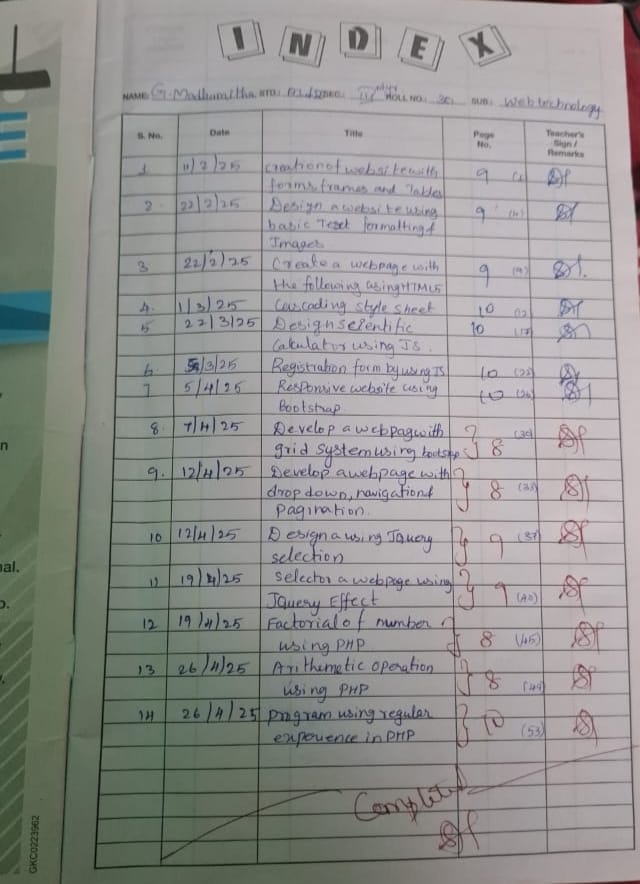 INDEX
NAME: G. Madhumitha STD: SEC: ROLL NO.: 30 SUB: Web technology
S. No. Date Title Page No. Teacher's Sign / Remarks
1 11/2/25 Creation of website with 9
forms, frames and Tables
2 22/2/25 Design a website using 9
basic Text formatting &
Images
3 22/2/25 Create a webpage with 9
the following using HTML5
4. 1/3/25 Cascading style sheet 10 (12)
5 22/3/25 Design scientific 10 (17)
Calculator using JS.
6 /3/25 Registration form by using JS 10
7 5/4/25 Responsive website using 10
Bootstrap
8. 7/4/25 Develop a webpage with (30)
grid system using bootstap 8
9. 12/4/25 Develop a webpage with
drop down, navigation & 8 (33)
pagination.
10 12/4/25 Design a using JQuery 9 (37)
selection
11 19/4/25 Selector a webpage using
JQuery Effect 9 (40)
12 19/4/25 Factorial of number
using PHP 8 (45)
13 26/4/25 Arithemetic operation
using PHP 8 (49)
14 26/4/25 program using regular 10
expervence in PHP (53)
Completed
GKC0223962